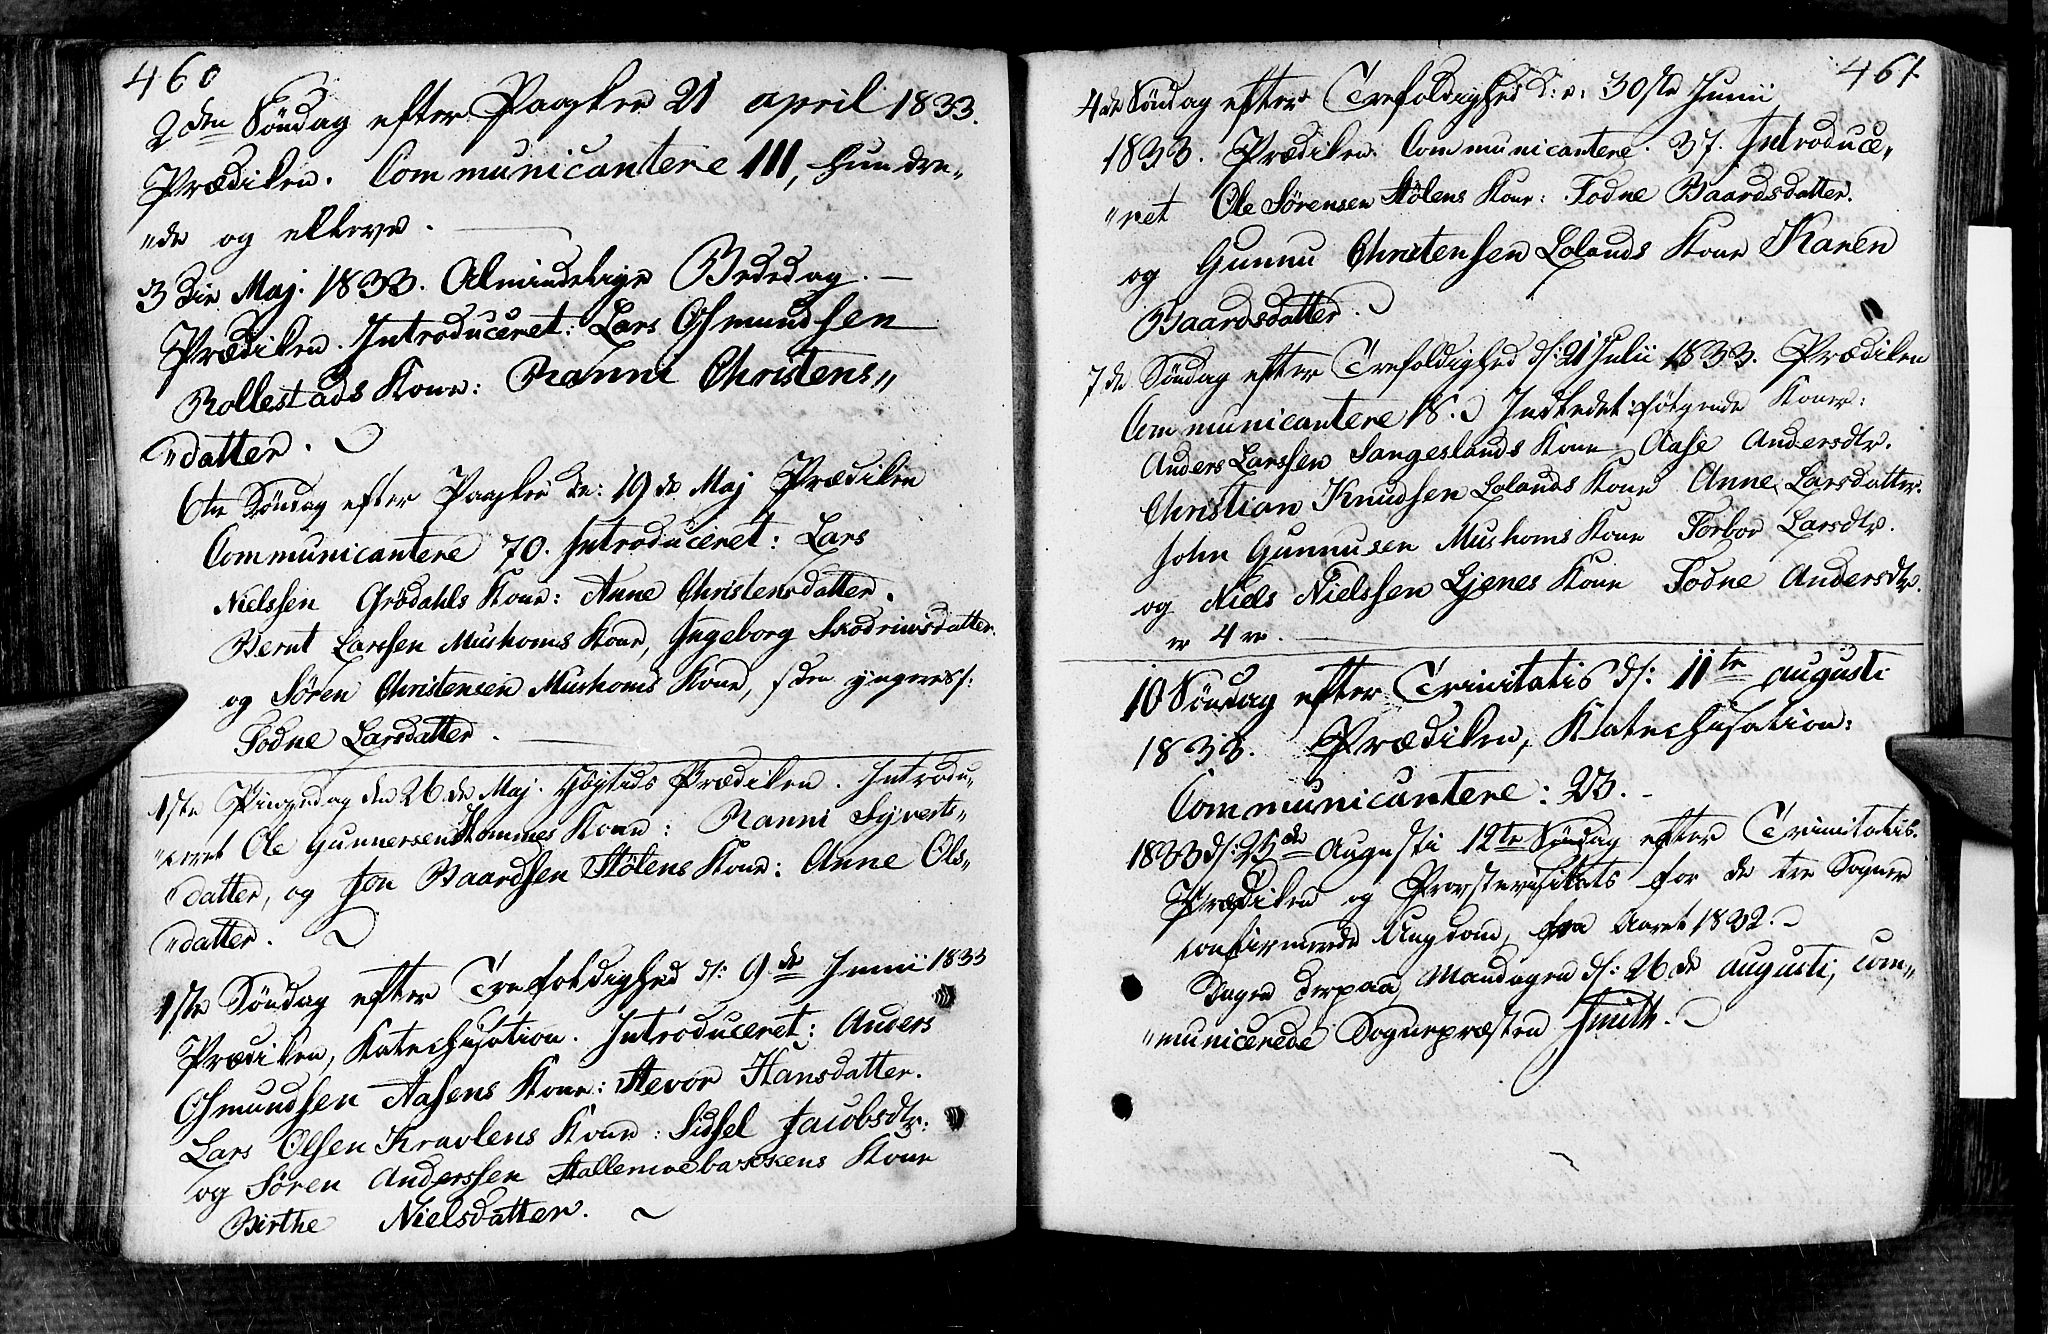 460
2den Søndag efter Paaske 21 april 1833.
Prædiken. Communicantere 111, hundre„
„de og elleve.
3die Maj. 1833. Almindelige Bededag.
Prædiken. Introduceret: Lars Osmundsen
Rollestads Kone: Ranni Christens„
„datter.
6te Søndag efter Paaske d: 19de Maj Prædiken
Communicantere 70. Introduceret: Lars
Nielssen Grødahls Kone: Anne Christensdatter.
Bernt Larssen Mushoms Kone, Ingeborg
og Søren Christensen Mushoms Kone, /den yngres/:
Todne Larsdatter.
1ste Pinsedag den 26de Maj. Høytids Prædiken. Introdu„
„ceret Ole Gunnersen Hommes Kone: Ranni Syverts„
datter, og Jon Baardsen Stølens Kone: Anne Ols„
„datter.
1ste Søndag efter Trefoldighed d: 9de Junii 1833
Prædiken, Katechisation. Introduceret: Anders
Osmundsen Aasens Kone: Stevor Hansdatter.
Lars Olsen Kravlens Kone: Sidsel Jacobsdtr:
og Søren Anderssen Stallemoebakkens Kone
Birthe Nielsdatter.
461
4de Søndag efter Trefoldighed d: 30ste Junii
1833. Prædiken. Communicantere. 37. Introduce„
„ret Ole Sørensen Stølens Kone: Todne Baardsdatter.
og Gunnu Christensen Lolands Kone Karen
Baardsdatter.
7de Søndag efter Trefoldighed d: 21 Julii 1833. Prædiken
Communicantere 18. Indledet følgende Koner:
Anders Larssen Sangeslands Kone Aase Andersdtr.
Christian Knudsen Lolands Kone Anne Larsdatter.
John Gunnusen Mushoms Kone Torbor Larsdtr.
og Niels Nielssen Ljenes Kone Todne Andersdtr.
er 4re.
10 Søndag efter Trinitatis d: 11te augusti
1833. Prædiken, Katechisation:
Communicantere: 23.
1833 d: 25de Augusti 12te Søndag efter Trinitatis.
Prædiken og Provstevisitats for de tre Sogner
confirmerede Ungdom, fra Aaret 1832.
Dagen derpaa, Mandagen d: 26de augusti, com„
„municerede Sognepræsten Smith.